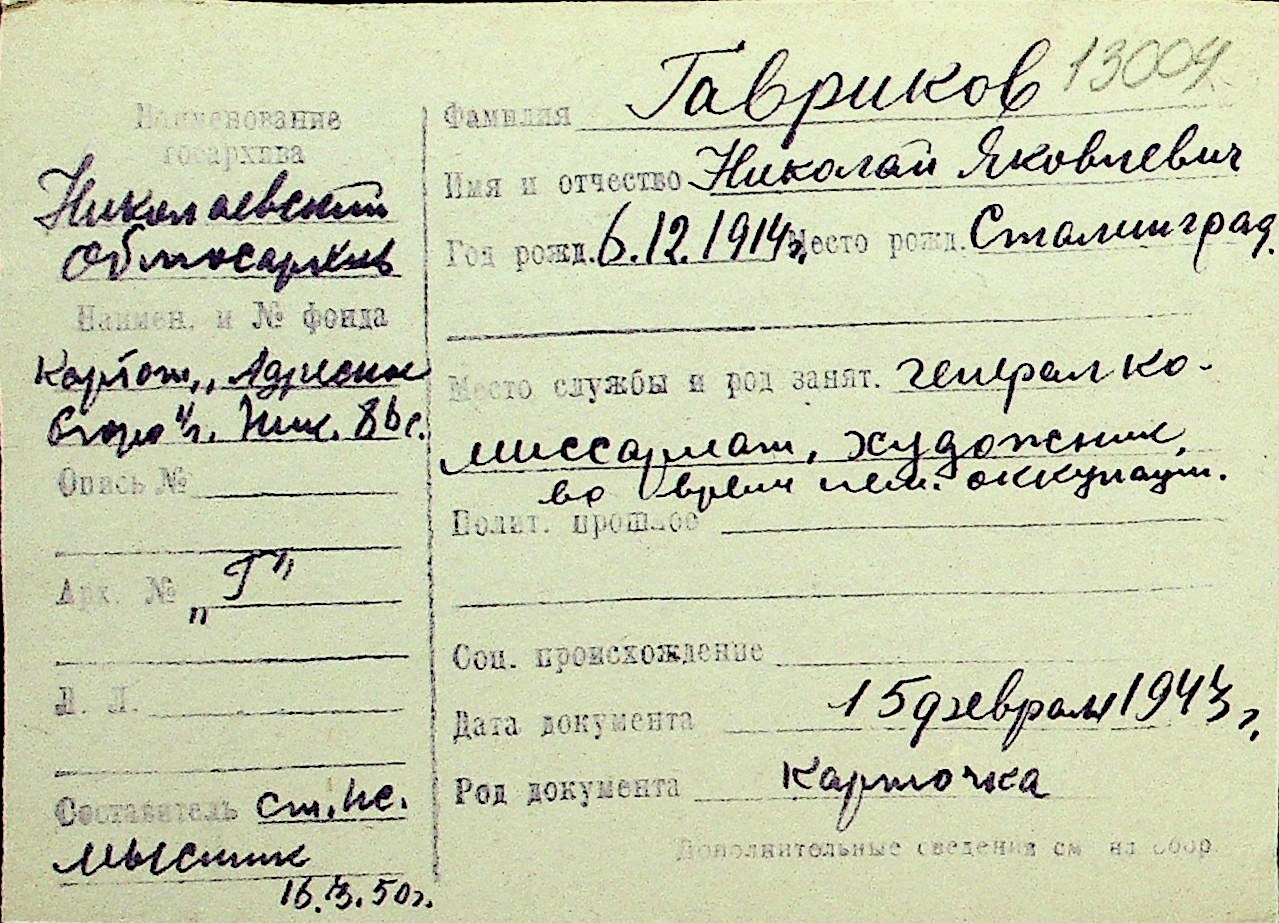 Гавриков 13004
Наименование
госархива
Николаевский
Облгосархив
Наимен. и № фонда
Картот. „Адресное
бюро" г. Ник.
Опись №
Арх. № „Г"
Л. Л.
Составитель ст. н.с.
Мысник
16.3.50г.
Фамилия
Имя и отчество Николай Яковлевич
Год рожд. 6.12.1914г. Место рожд. Сталинград.
Место службы и род занят. генералко-
миссариат, художник,
во время нем. оккупации.
Полит. прошлое
Соц. происхождение
Дата документа 15 февраля 1943 г.
Род документа карточка
Дополнительные сведения см на обор